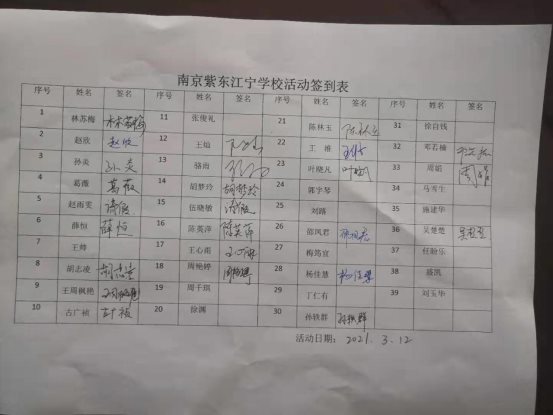 南京紫东江宁学校活动签到表
序号 姓名 签名 序号 姓名 签名 序号 姓名 签名 序号 姓名 签名
1 林苏梅 林苏梅 11 张俊礼 21 陈林玉 陈林玉 31 徐自钱
2 赵欣 赵欣 12 王灿 22 王雅 32 邓若楠
3 孙炎 孙炎 13 骆雨 23 叶晓凡 33 周娟 周娟
4 葛薇 葛薇 14 胡梦玲 胡梦玲 24 郭宇琴 34 马秀生
5 赵雨雯 15 伍晓敏 25 刘璐 35 施建华
6 薛恒 薛恒 16 陈英萍 陈英萍 26 邵凤君 36 吴楚楚
7 王婷 17 王心甫 27 梅筠宜 37 任盼乐
8 胡志凌 胡志凌 18 周艳婷 28 杨佳慧 杨佳慧 38 盛凯
9 王周枫艳 19 周千琪 29 丁仁有 39 刘玉华
10 古广祯 20 徐渊 30 孙轶群 孙轶群
活动日期: 2021. 3. 12